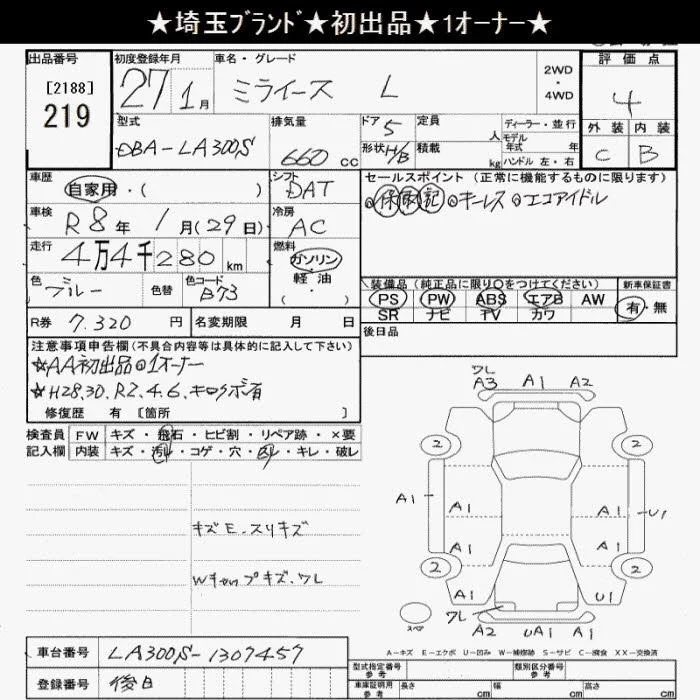 ★埼玉ブランド★初出品★1オーナー★
出品番号
[2188]
219
初度登録年月
27 1月
車名・グレード
ミライース L
2WD
・
4WD
評価点
4
外装 内装
C B
型式
DBA-LA300S
排気量
660 cc
ドア 5
形状 H/B
定員 人
積載 kg
ディーラー・並行
モデル
年式 年
ハンドル 左・右
車歴
自家用・( )
シフト
DAT
車検
R8年 1月(29日)
冷房
AC
走行
4万4千280 km
燃料
ガソリン
軽油
( ・ )
色
ブルー
色替
色コード
B73
R券 7.320 円
名変期限 月 日
セールスポイント(正常に機能するものに限ります)
◎保取記◎キーレス◎エコアイドル
装備品(純正品に限り○をつけてください)
PS PW ABS エアB AW
SR ナビ TV カワ
新車保証書
有・無
後日品
注意事項申告欄(不具合内容等は具体的に記入して下さい)
☆AA初出品◎1オーナー
☆H28.30.R2.4.6.キロクボ有
修復歴 有 [箇所 ]
検査員
記入欄
FW キズ・飛石・ヒビ割・リペア跡・×要
内装 キズ・汚レ・コゲ・穴・凹・キレ・破レ
キズE.スリキズ
ワレ
A3 A1 A2
2 2
A1 A1 A1 U1
A1 A1
2 2
A1 U1
ワレ
スペア
A2 UA1 A1
A-キズ E-エクボ U-凹み W-補修跡 S-サビ C-腐食 XX-交換済
車台番号 LA300S-1307457
登録番号 後日
型式指定番号
参考
類別区分番号
参考
車庫証明用
参考
長さ cm 幅 cm 高さ cm